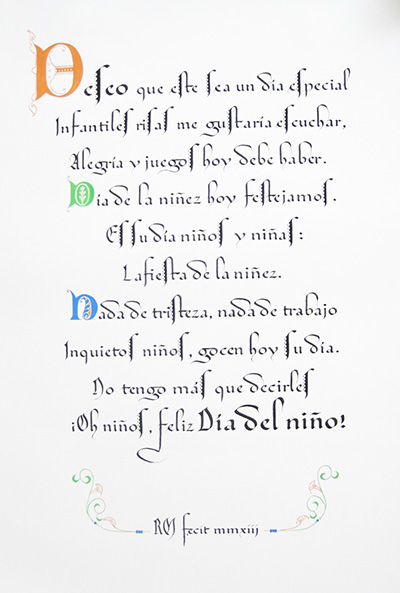 Deseo que este sea un día especial
Infantiles risas me gustaría escuchar,
Alegría y juegos hoy debe haber.
Día de la niñez hoy festejamos.
Es su día niños y niñas:
La fiesta de la niñez.
Nada de tristeza, nada de trabajo
Inquietos niños, gocen hoy su día.
No tengo más que decirles
¡Oh niños, feliz Día del niño!
RM fecit mmxiii